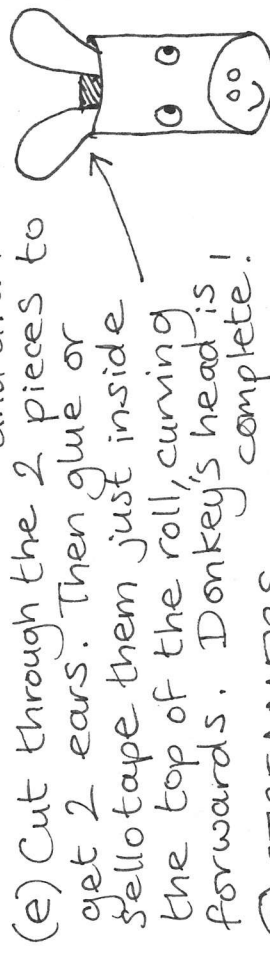 (e) Cut through the 2 pieces to
get 2 ears. Then glue or
sellotape them just inside
the top of the roll, curving
forwards. Donkey's head is
complete!